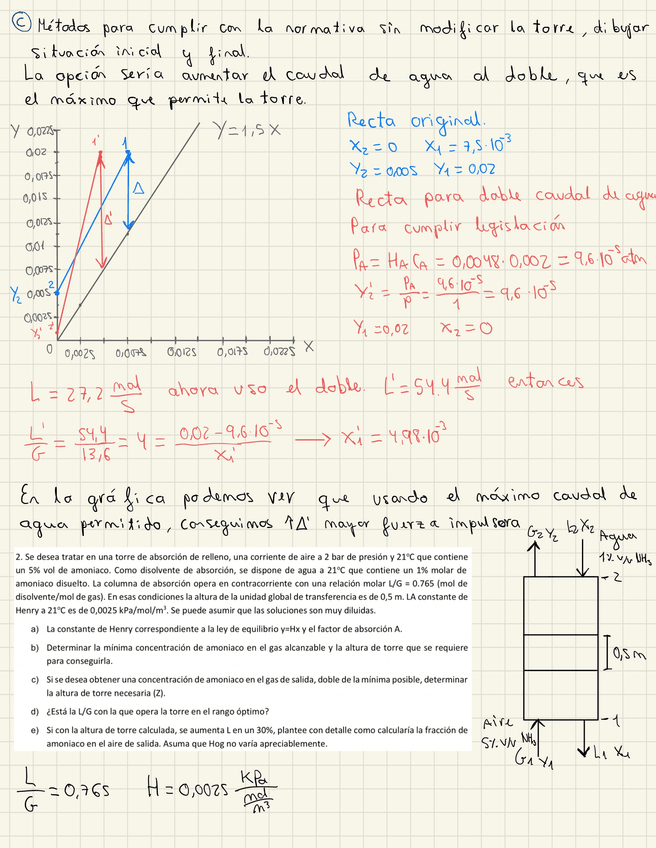 c) Métodos para cumplir con la normativa sin modificar la torre, dibujar
situación inicial y final.
La opción sería aumentar el caudal de agua al doble, que es
el máximo que permite la torre.
Y 0,0225
0,02
0,0175
0,015
0,0125
0,01
0,0075
Y₂ 0,005 2
0,0025
Y₂' 2'
0 0,0025 0,0075 0,0125 0,0175 0,0225 X
1' 1 Y=1,5X
Δ
Δ'
Recta original.
X₂ = 0 X₁ = 7,5·10⁻³
Y₂ = 0,005 Y₁ = 0,02
Recta para doble caudal de agua
Para cumplir legislación
P_A = H_A C_A = 0,0048·0,002 = 9,6·10⁻⁵ atm
Y₂' = P_A/P = 9,6·10⁻⁵/1 = 9,6·10⁻⁵
Y₁ = 0,02 X₂ = 0
L = 27,2 mol/s ahora uso el doble. L' = 54,4 mol/s entonces
L'/G = 54,4/13,6 = 4 = 0,02 - 9,6·10⁻⁵/X₁' → X₁' = 4,98·10⁻³
En la gráfica podemos ver que usando el máximo caudal de
agua permitido, conseguimos ↑Δ' mayor fuerza impulsora
2. Se desea tratar en una torre de absorción de relleno, una corriente de aire a 2 bar de presión y 21ºC que contiene
un 5% vol de amoniaco. Como disolvente de absorción, se dispone de agua a 21ºC que contiene un 1% molar de
amoniaco disuelto. La columna de absorción opera en contracorriente con una relación molar L/G = 0.765 (mol de
disolvente/mol de gas). En esas condiciones la altura de la unidad global de transferencia es de 0,5 m. LA constante de
Henry a 21ºC es de 0,0025 kPa/mol/m³. Se puede asumir que las soluciones son muy diluidas.
a) La constante de Henry correspondiente a la ley de equilibrio y=Hx y el factor de absorción A.
b) Determinar la mínima concentración de amoniaco en el gas alcanzable y la altura de torre que se requiere
para conseguirla.
c) Si se desea obtener una concentración de amoniaco en el gas de salida, doble de la mínima posible, determinar
la altura de torre necesaria (Z).
d) ¿Está la L/G con la que opera la torre en el rango óptimo?
e) Si con la altura de torre calculada, se aumenta L en un 30%, plantee con detalle como calcularía la fracción de
amoniaco en el aire de salida. Asuma que Hog no varía apreciablemente.
G₂ Y₂ L₂ X₂ Agua
1% v/v NH₃
2
0,5m
Aire 1
5% v/v NH₃
G₁ Y₁ L₁ X₁
L/G = 0,765 H = 0,0025 KPa/mol/m³